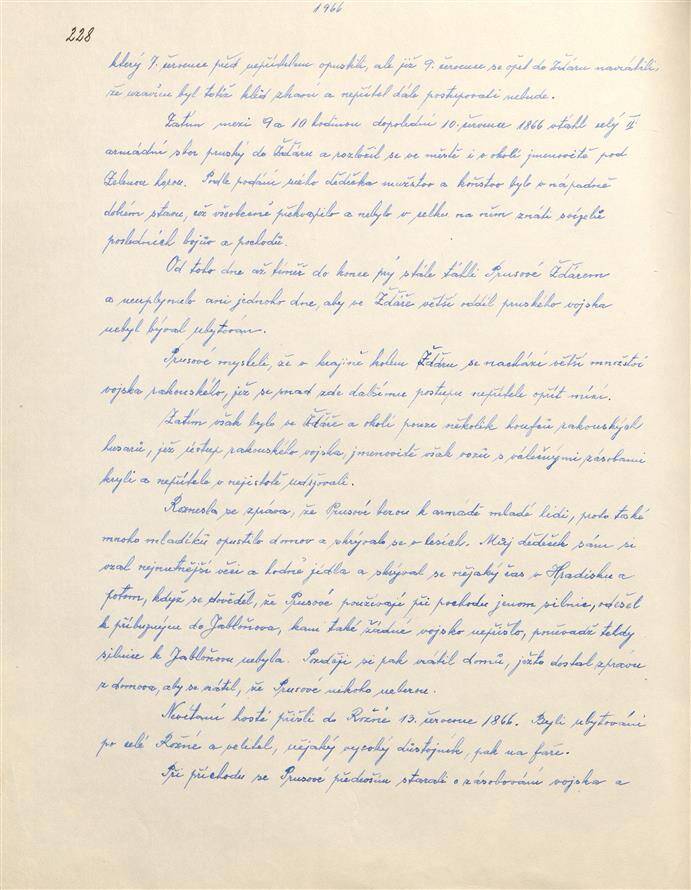 1966
228
který 7. července před nepřítelem opustili, ale již 9. července se opět do Žďáru navrátili,
že uzavřen byl totiž klid zbraní a nepřítel dále postupovati nebude.
Zatím mezi 9 a 10 hodinou dopolední 10. července 1866 vtáhl celý II
armádní sbor pruský do Žďáru a rozložil se ve městě i v okolí jmenovitě pod
Zelenou horou. Podle podání mého dědečka mužstvo a koňstvo bylo v nápadně
dobrém stavu, což všeobecně překvapilo a nebylo v celku na něm znáti svízelů
posledních bojův a pochodů.
Od toho dne až téměř do konce prý stále táhli Prusové Žďárem
a neuplynulo ani jednoho dne, aby ve Žďáře větší oddíl pruského vojska
nebyl býval ubytován.
Prusové mysleli, že v krajině kolem Žďáru se nachází větší množství
vojska rakouského, jež se snad zde dalšímu postupu nepřítele opříti míní.
Zatím však bylo ve Žďáře a okolí pouze několik houfců rakouských
husarů, jež ústup rakouského vojska, jmenovitě však vozů s válečnými zásobami
kryli a nepřítele v nejistotě udržovali.
Roznesla se zpráva, že Prusové berou k armádě mladé lidi, proto také
mnoho mladíků opustilo domov a skrývalo se v lesích. Můj dědeček sám si
vzal nejnutnější věci a hodně jídla a skrýval se nějaký čas v Hradisku a
potom, když se dověděl, že Prusové používají při pochodu jenom silnic, odešel
k příbuzným do Jabloňova, kam také žádné vojsko nepřišlo, poněvadž tehdy
silnice k Jabloňovu nebyla. Později si pak vrátil domů, ježto dostal zprávu
z domova, aby se vrátil, že Prusové nikoho neberou.
Nevítaní hosté přišli do Rožné 13. července 1866. Byli ubytováni
po celé Rožné a velitel, nějaký vysoký důstojník, pak na faře.
Při příchodu se Prusové především starali o zásobování vojska a